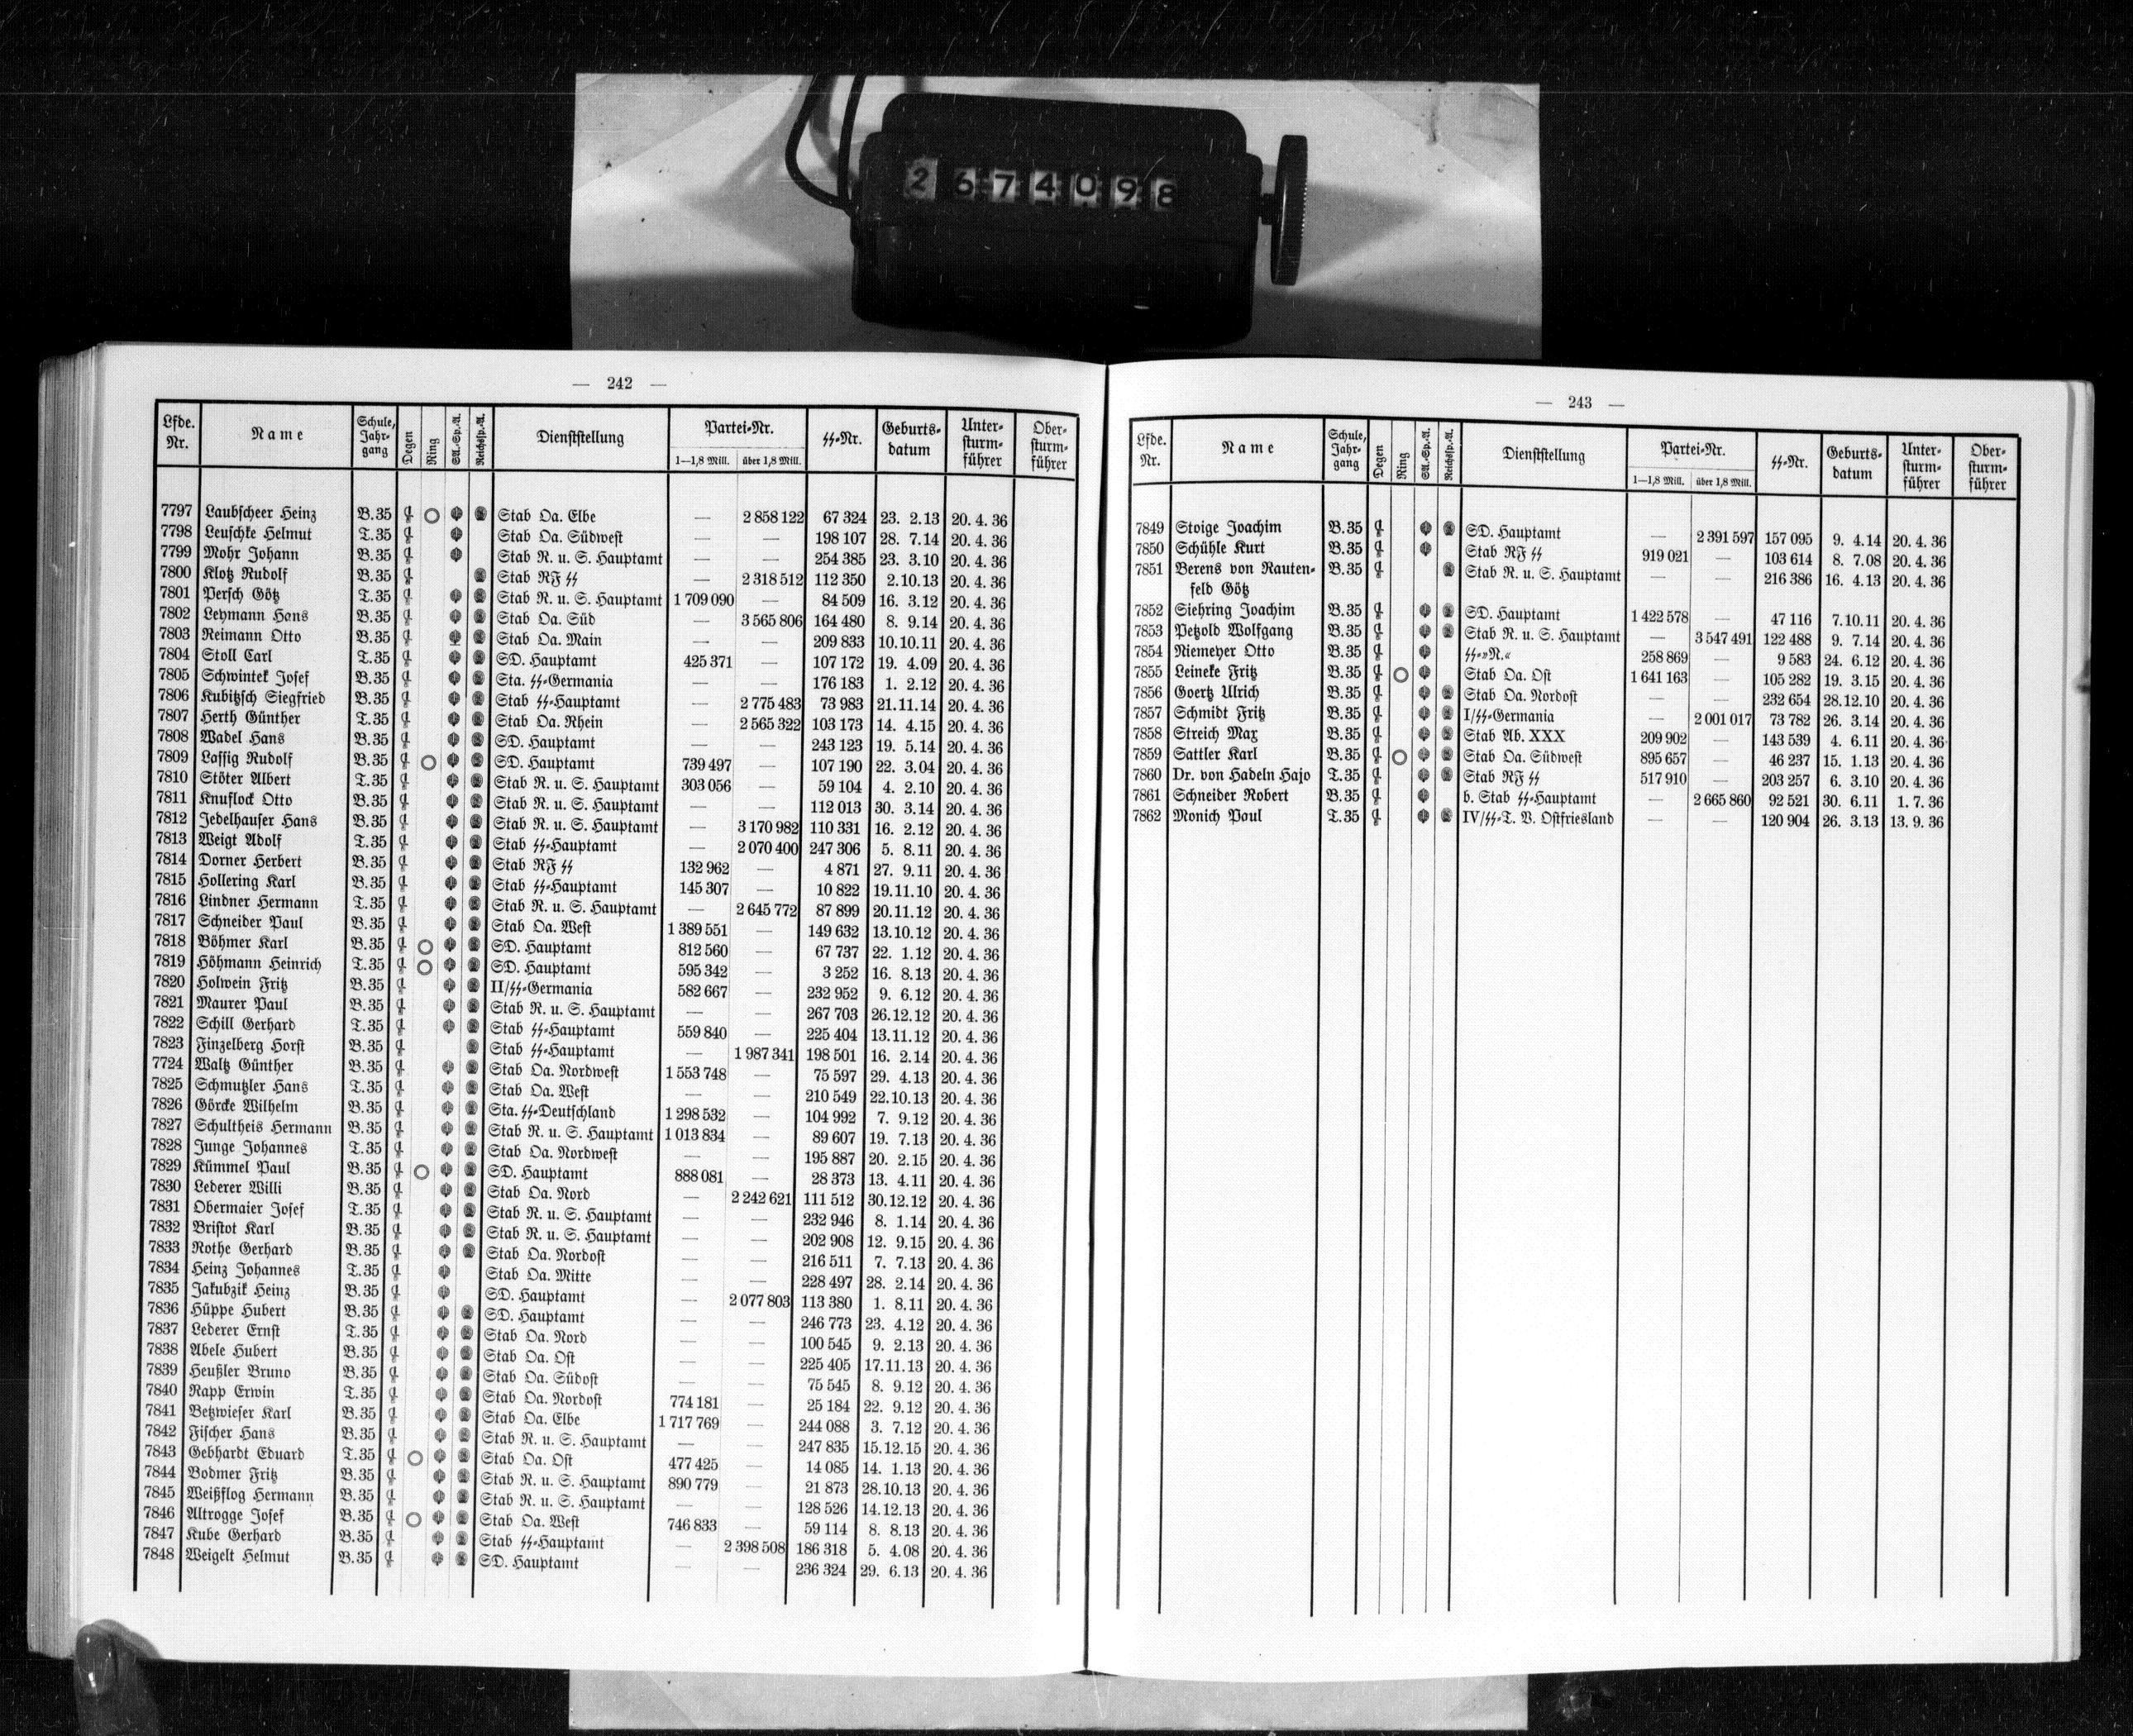 2674098
— 242 —
Lfde. Nr. Name Schule, Jahr-gang Degen Ring SA.-Sp.-A. Reichssp.-A. Dienststellung Partei-Nr. 1—1,8 Mill. über 1,8 Mill. ᛋᛋ-Nr. Geburts-datum Unter-sturm-führer Ober-sturm-führer
7797 Laubscheer Heinz B.35 Stab Oa. Elbe — 2 858 122 67 324 23. 2.13 20. 4. 36
7798 Leuschke Helmut T.35 Stab Oa. Südwest — — 198 107 28. 7.14 20. 4. 36
7799 Mohr Johann B.35 Stab R. u. S. Hauptamt — — 254 385 23. 3.10 20. 4. 36
7800 Klotz Rudolf B.35 Stab RF ᛋᛋ — 2 318 512 112 350 2.10.13 20. 4. 36
7801 Persch Götz T.35 Stab R. u. S. Hauptamt 1 709 090 — 84 509 16. 3.12 20. 4. 36
7802 Leymann Hans B.35 Stab Oa. Süd — 3 565 806 164 480 8. 9.14 20. 4. 36
7803 Reimann Otto B.35 Stab Oa. Main — — 209 833 10.10.11 20. 4. 36
7804 Stoll Carl T.35 SD. Hauptamt 425 371 — 107 172 19. 4.09 20. 4. 36
7805 Schwintek Josef B.35 Sta. ᛋᛋ-Germania — — 176 183 1. 2.12 20. 4. 36
7806 Kubitzsch Siegfried B.35 Stab ᛋᛋ-Hauptamt — 2 775 483 73 983 21.11.14 20. 4. 36
7807 Herth Günther T.35 Stab Oa. Rhein — 2 565 322 103 173 14. 4.15 20. 4. 36
7808 Wadel Hans B.35 SD. Hauptamt — — 243 123 19. 5.14 20. 4. 36
7809 Lassig Rudolf B.35 SD. Hauptamt 739 497 — 107 190 22. 3.04 20. 4. 36
7810 Stöter Albert T.35 Stab R. u. S. Hauptamt 303 056 — 59 104 4. 2.10 20. 4. 36
7811 Knuflock Otto B.35 Stab R. u. S. Hauptamt — — 112 013 30. 3.14 20. 4. 36
7812 Jedelhauser Hans B.35 Stab R. u. S. Hauptamt — 3 170 982 110 331 16. 2.12 20. 4. 36
7813 Weigt Adolf T.35 Stab ᛋᛋ-Hauptamt — 2 070 400 247 306 5. 8.11 20. 4. 36
7814 Dorner Herbert B.35 Stab RF ᛋᛋ 132 962 — 4 871 27. 9.11 20. 4. 36
7815 Hollering Karl B.35 Stab ᛋᛋ-Hauptamt 145 307 — 10 822 19.11.10 20. 4. 36
7816 Lindner Hermann T.35 Stab R. u. S. Hauptamt — 2 645 772 87 899 20.11.12 20. 4. 36
7817 Schneider Paul B.35 Stab Oa. West 1 389 551 — 149 632 13.10.12 20. 4. 36
7818 Böhmer Karl B.35 SD. Hauptamt 812 560 — 67 737 22. 1.12 20. 4. 36
7819 Höhmann Heinrich T.35 SD. Hauptamt 595 342 — 3 252 16. 8.13 20. 4. 36
7820 Holwein Fritz B.35 II/ᛋᛋ-Germania 582 667 — 232 952 9. 6.12 20. 4. 36
7821 Maurer Paul B.35 Stab R. u. S. Hauptamt — — 267 703 26.12.12 20. 4. 36
7822 Schill Gerhard T.35 Stab ᛋᛋ-Hauptamt 559 840 — 225 404 13.11.12 20. 4. 36
7823 Finzelberg Horst B.35 Stab ᛋᛋ-Hauptamt — 1 987 341 198 501 16. 2.14 20. 4. 36
7724 Waltz Günther B.35 Stab Oa. Nordwest 1 553 748 — 75 597 29. 4.13 20. 4. 36
7825 Schmutzler Hans T.35 Stab Oa. West — — 210 549 22.10.13 20. 4. 36
7826 Görcke Wilhelm B.35 Sta. ᛋᛋ-Deutschland 1 298 532 — 104 992 7. 9.12 20. 4. 36
7827 Schultheis Hermann B.35 Stab R. u. S. Hauptamt 1 013 834 — 89 607 19. 7.13 20. 4. 36
7828 Junge Johannes T.35 Stab Oa. Nordwest — — 195 887 20. 2.15 20. 4. 36
7829 Kümmel Paul B.35 SD. Hauptamt 888 081 — 28 373 13. 4.11 20. 4. 36
7830 Lederer Willi B.35 Stab Oa. Nord — 2 242 621 111 512 30.12.12 20. 4. 36
7831 Obermaier Josef T.35 Stab R. u. S. Hauptamt — — 232 946 8. 1.14 20. 4. 36
7832 Bristot Karl B.35 Stab R. u. S. Hauptamt — — 202 908 12. 9.15 20. 4. 36
7833 Rothe Gerhard B.35 Stab Oa. Nordost — — 216 511 7. 7.13 20. 4. 36
7834 Heinz Johannes T.35 Stab Oa. Mitte — — 228 497 28. 2.14 20. 4. 36
7835 Jakubzik Heinz B.35 SD. Hauptamt — 2 077 803 113 380 1. 8.11 20. 4. 36
7836 Hüppe Hubert B.35 SD. Hauptamt — — 246 773 23. 4.12 20. 4. 36
7837 Lederer Ernst T.35 Stab Oa. Nord — — 100 545 9. 2.13 20. 4. 36
7838 Abele Hubert B.35 Stab Oa. Ost — — 225 405 17.11.13 20. 4. 36
7839 Heußler Bruno B.35 Stab Oa. Südost — — 75 545 8. 9.12 20. 4. 36
7840 Rapp Erwin T.35 Stab Oa. Nordost 774 181 — 25 184 22. 9.12 20. 4. 36
7841 Betzwieser Karl B.35 Stab Oa. Elbe 1 717 769 — 244 088 3. 7.12 20. 4. 36
7842 Fischer Hans B.35 Stab R. u. S. Hauptamt — — 247 835 15.12.15 20. 4. 36
7843 Gebhardt Eduard T.35 Stab Oa. Ost 477 425 — 14 085 14. 1.13 20. 4. 36
7844 Bodmer Fritz B.35 Stab R. u. S. Hauptamt 890 779 — 21 873 28.10.13 20. 4. 36
7845 Weißflog Hermann B.35 Stab R. u. S. Hauptamt — — 128 526 14.12.13 20. 4. 36
7846 Altrogge Josef B.35 Stab Oa. West 746 833 — 59 114 8. 8.13 20. 4. 36
7847 Kube Gerhard B.35 Stab ᛋᛋ-Hauptamt — 2 398 508 186 318 5. 4.08 20. 4. 36
7848 Weigelt Helmut B.35 SD. Hauptamt — — 236 324 29. 6.13 20. 4. 36
— 243 —
Lfde. Nr. Name Schule, Jahr-gang Degen Ring SA.-Sp.-A. Reichssp.-A. Dienststellung Partei-Nr. 1—1,8 Mill. über 1,8 Mill. ᛋᛋ-Nr. Geburts-datum Unter-sturm-führer Ober-sturm-führer
7849 Stoige Joachim B.35 SD. Hauptamt — 2 391 597 157 095 9. 4.14 20. 4. 36
7850 Schühle Kurt B.35 Stab RF ᛋᛋ 919 021 — 103 614 8. 7.08 20. 4. 36
7851 Berens von Rauten- B.35 Stab R. u. S. Hauptamt — — 216 386 16. 4.13 20. 4. 36
feld Götz
7852 Siehring Joachim B.35 SD. Hauptamt 1 422 578 — 47 116 7.10.11 20. 4. 36
7853 Petzold Wolfgang B.35 Stab R. u. S. Hauptamt — 3 547 491 122 488 9. 7.14 20. 4. 36
7854 Niemeyer Otto B.35 ᛋᛋ-»N.« 258 869 — 9 583 24. 6.12 20. 4. 36
7855 Leineke Fritz B.35 Stab Oa. Ost 1 641 163 — 105 282 19. 3.15 20. 4. 36
7856 Goertz Ulrich B.35 Stab Oa. Nordost — — 232 654 28.12.10 20. 4. 36
7857 Schmidt Fritz B.35 I/ᛋᛋ-Germania — 2 001 017 73 782 26. 3.14 20. 4. 36
7858 Streich Max B.35 Stab Ab. XXX 209 902 — 143 539 4. 6.11 20. 4. 36
7859 Sattler Karl B.35 Stab Oa. Südwest 895 657 — 46 237 15. 1.13 20. 4. 36
7860 Dr. von Hadeln Hajo T.35 Stab RF ᛋᛋ 517 910 — 203 257 6. 3.10 20. 4. 36
7861 Schneider Robert B.35 b. Stab ᛋᛋ-Hauptamt — 2 665 860 92 521 30. 6.11 1. 7. 36
7862 Monich Paul T.35 IV/ᛋᛋ-T. V. Ostfriesland — — 120 904 26. 3.13 13. 9. 36